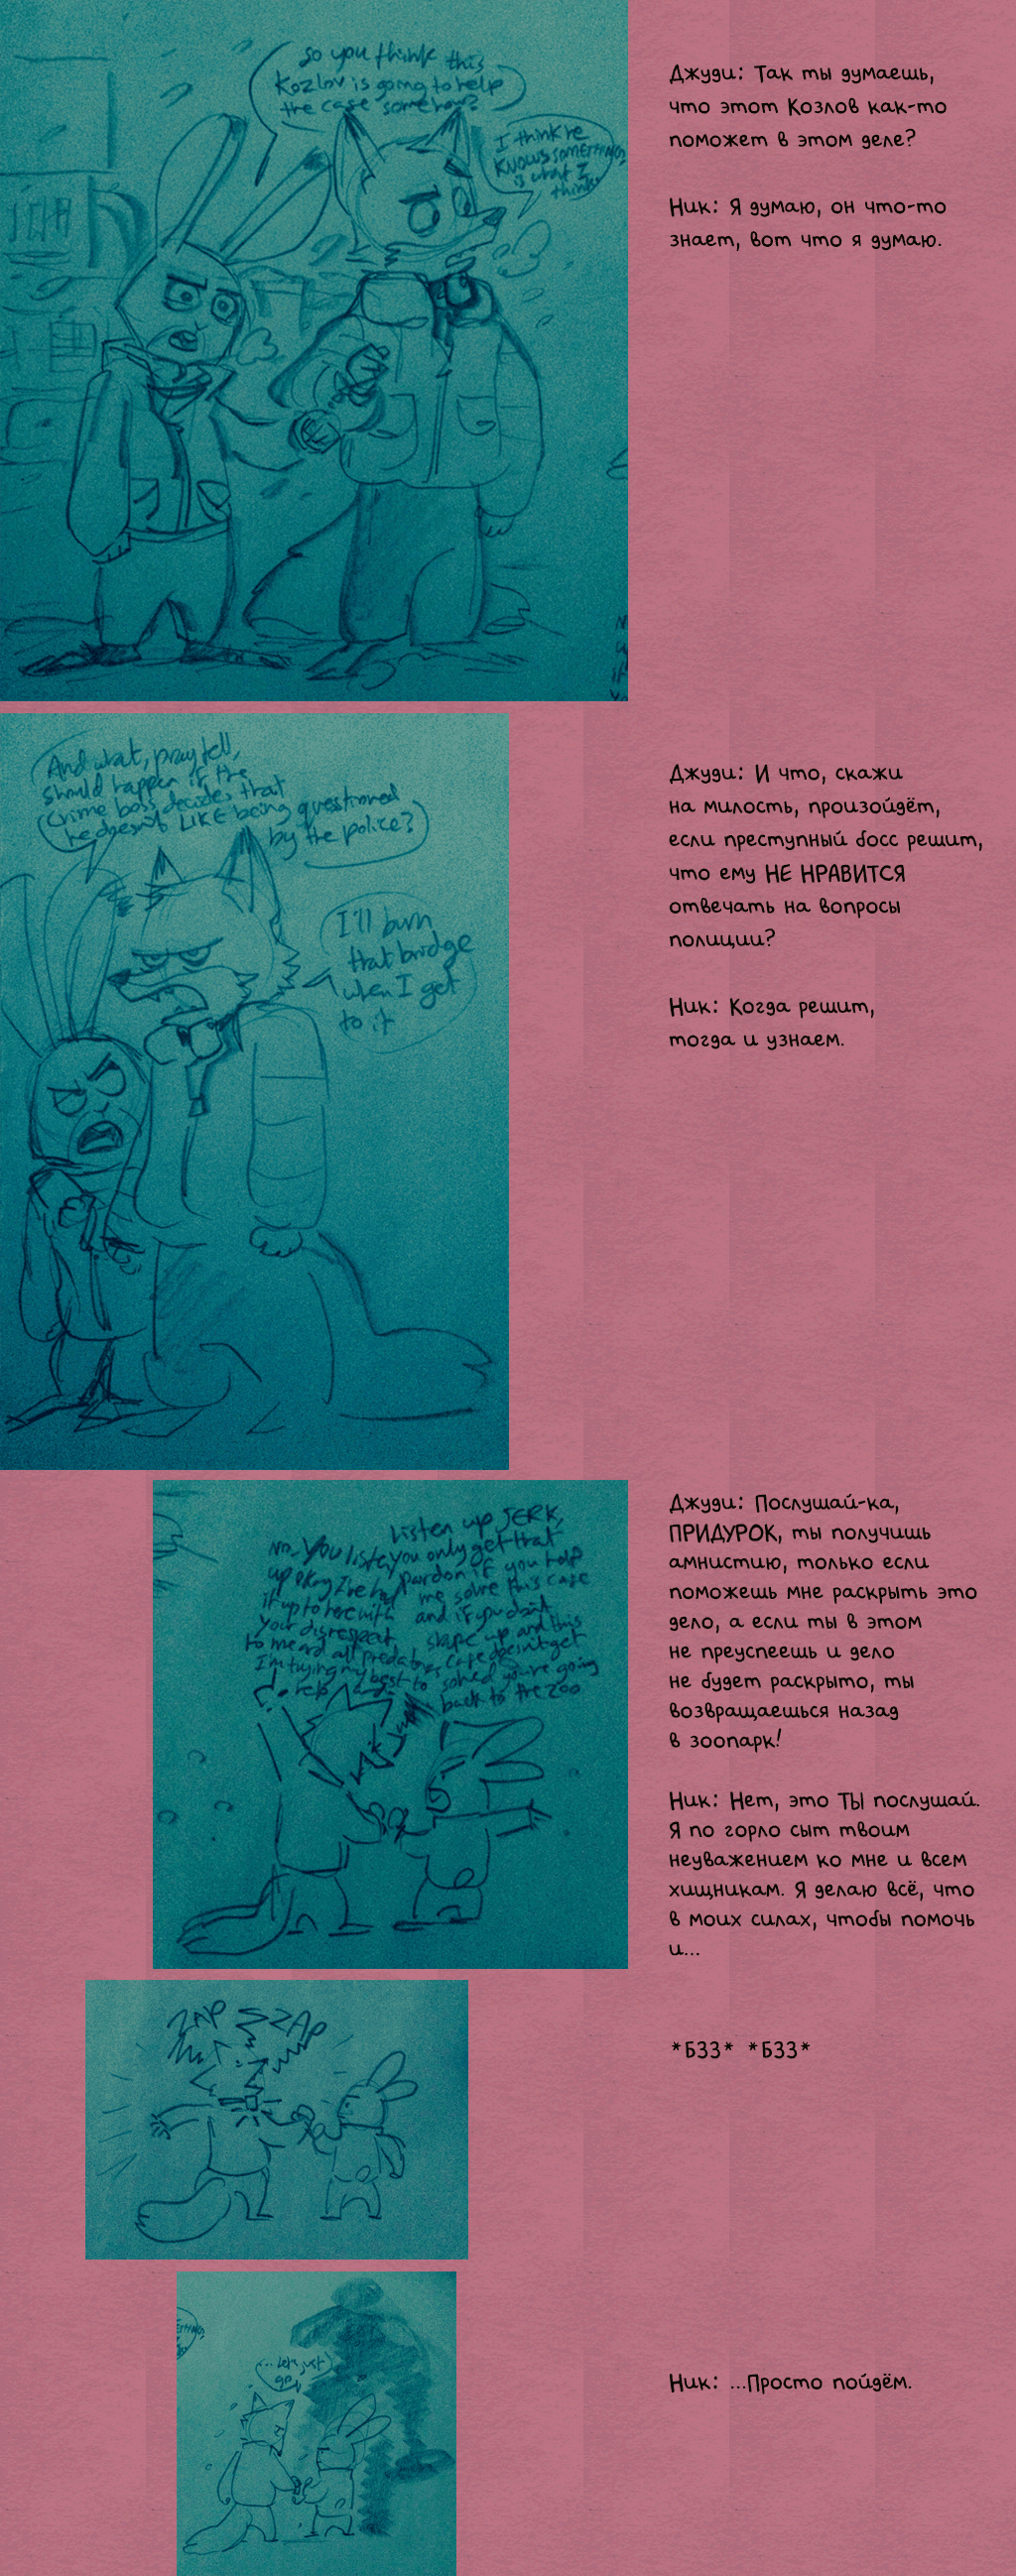 So you think this
Kozlov is going to help
the case somehow?
I think he
KNOWS SOMETHING,
is what I
think.
Джуди: Так ты думаешь,
что этот Козлов как-то
поможет в этом деле?
Ник: Я думаю, он что-то
знает, вот что я думаю.
And what, pray tell,
should happen if the
crime boss decides that
he doesn't LIKE being questioned
by the police?
I'll burn
that bridge
when I get
to it
Джуди: И что, скажи
на милость, произойдёт,
если преступный босс решит,
что ему НЕ НРАВИТСЯ
отвечать на вопросы
полиции?
Ник: Когда решит,
тогда и узнаем.
Listen up JERK,
you only get that
pardon if you help
me solve this case
and if you don't
shape up and this
case doesn't get
solved you're going
back to the zoo
No, You listen
up okay I've had
it up to here with
your disrespect
to me and all predators
I'm trying my best to
help and
Джуди: Послушай-ка,
ПРИДУРОК, ты получишь
амнистию, только если
поможешь мне раскрыть это
дело, а если ты в этом
не преуспеешь и дело
не будет раскрыто, ты
возвращаешься назад
в зоопарк!
Ник: Нет, это ТЫ послушай.
Я по горло сыт твоим
неуважением ко мне и всем
хищникам. Я делаю всё, что
в моих силах, чтобы помочь
и...
ZAP ZZAP
*БЗЗ* *БЗЗ*
...Let's just
go
Ник: ...Просто пойдём.